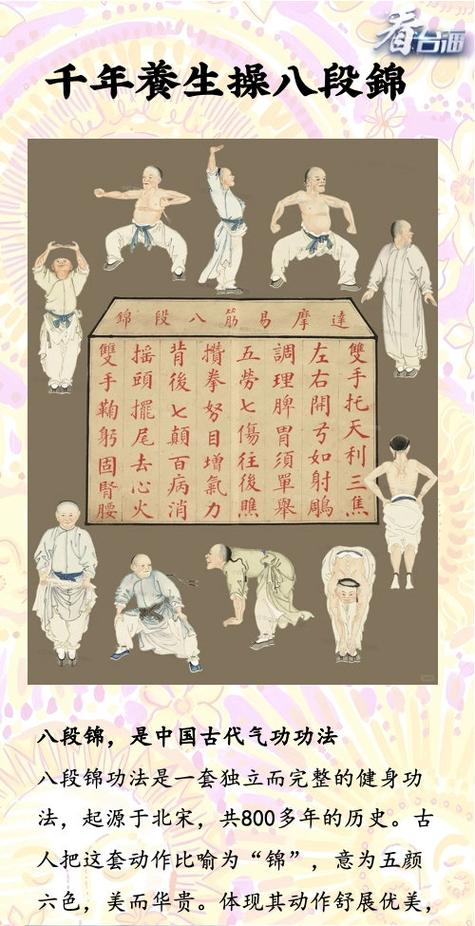 看台海
千年養生操八段錦
達摩易筋八段錦
雙手托天利三焦
左右開弓如射鵰
調理脾胃須單舉
五勞七傷往後瞧
攢拳努目增氣力
背後七顛百病消
搖頭擺尾去心火
雙手鞠躬固腎腰
八段锦，是中国古代气功功法
八段锦功法是一套独立而完整的健身功
法，起源于北宋，共800多年的历史。古
人把这套动作比喻为“锦”，意为五颜
六色，美而华贵。体现其动作舒展优美，